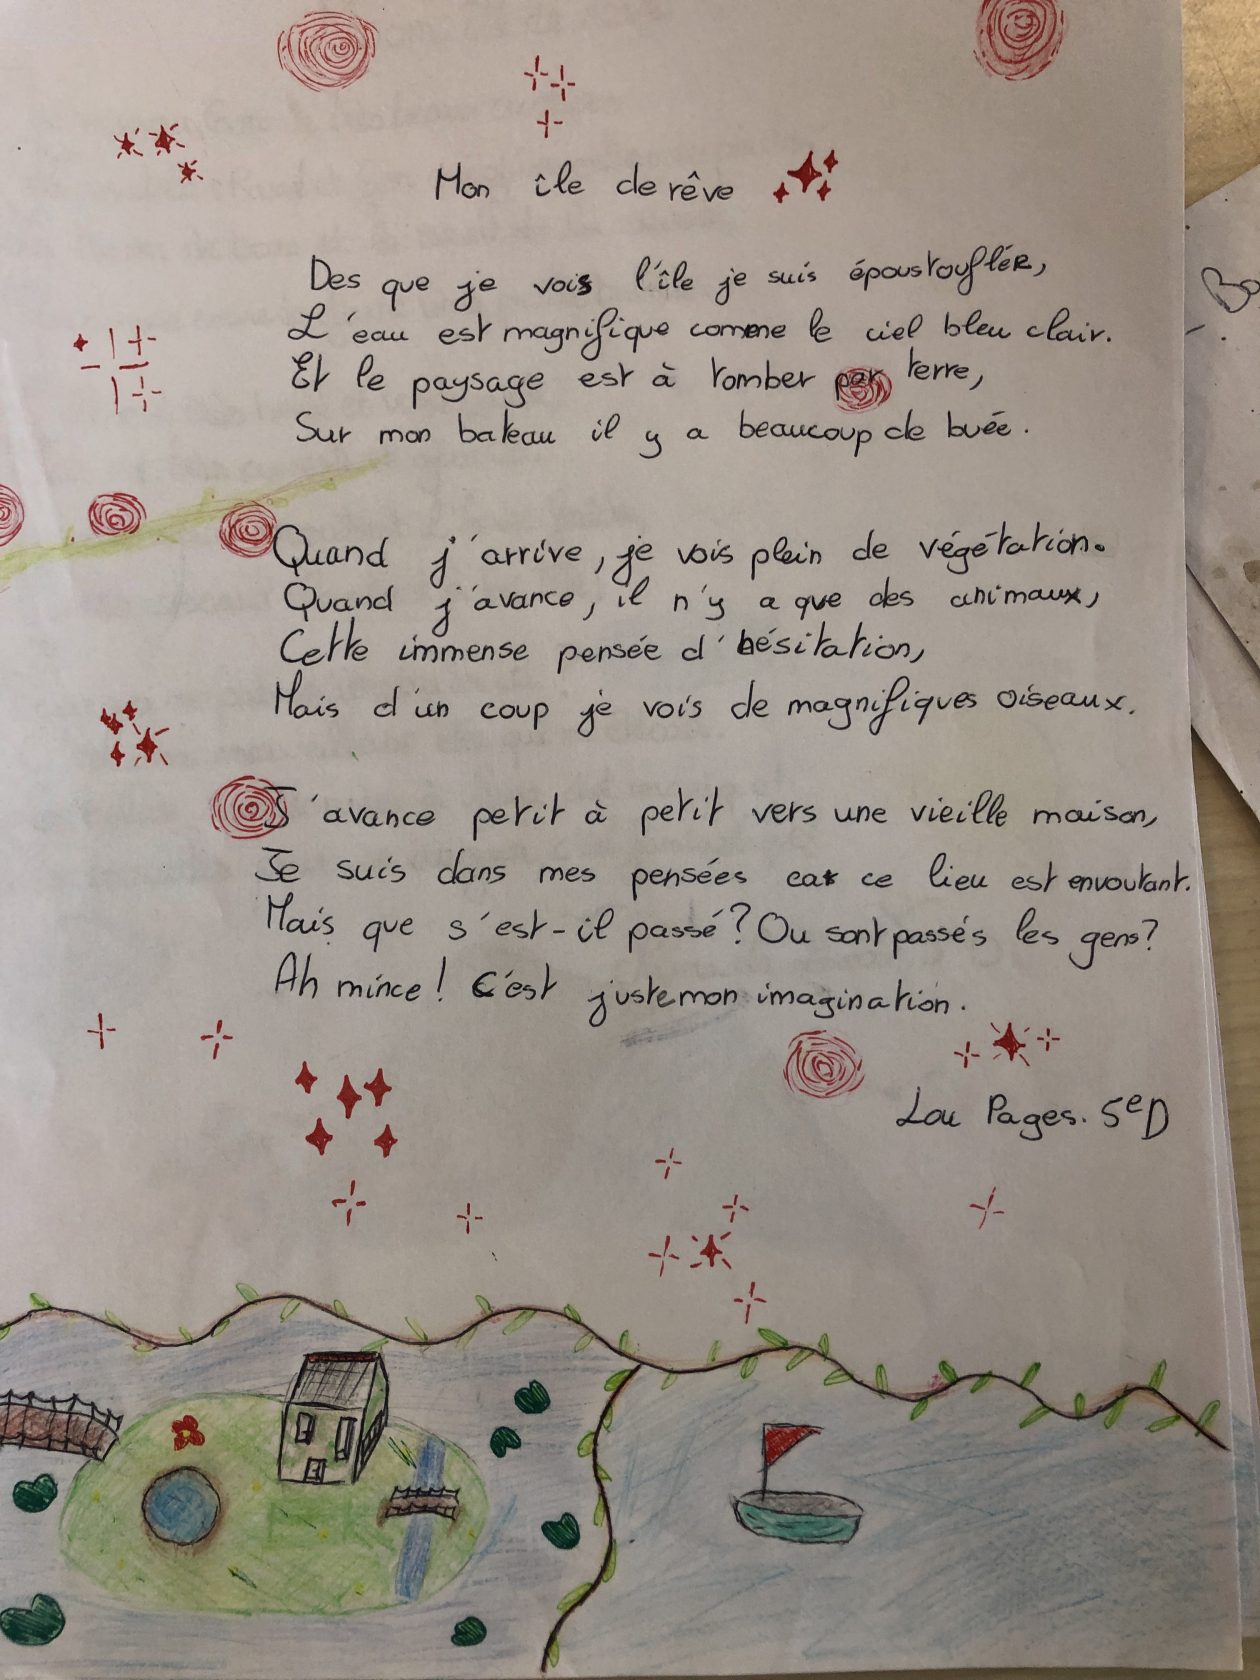 Mon île de rêve
Des que je vois l'île je suis époustouflér,
L'eau est magnifique comme le ciel bleu clair.
Et le paysage est à tomber par terre,
Sur mon bateau il y a beaucoup de buée.
Quand j'arrive, je vois plein de végétation.
Quand j'avance, il n'y a que des animaux,
Cette immense pensée d'hésitation,
Mais d'un coup je vois de magnifiques oiseaux.
J'avance petit à petit vers une vieille maison,
Je suis dans mes pensées car ce lieu est envoutant.
Mais que s'est-il passé? Ou sont passés les gens?
Ah mince! C'est juste mon imagination.
Lou Pages. 5eD